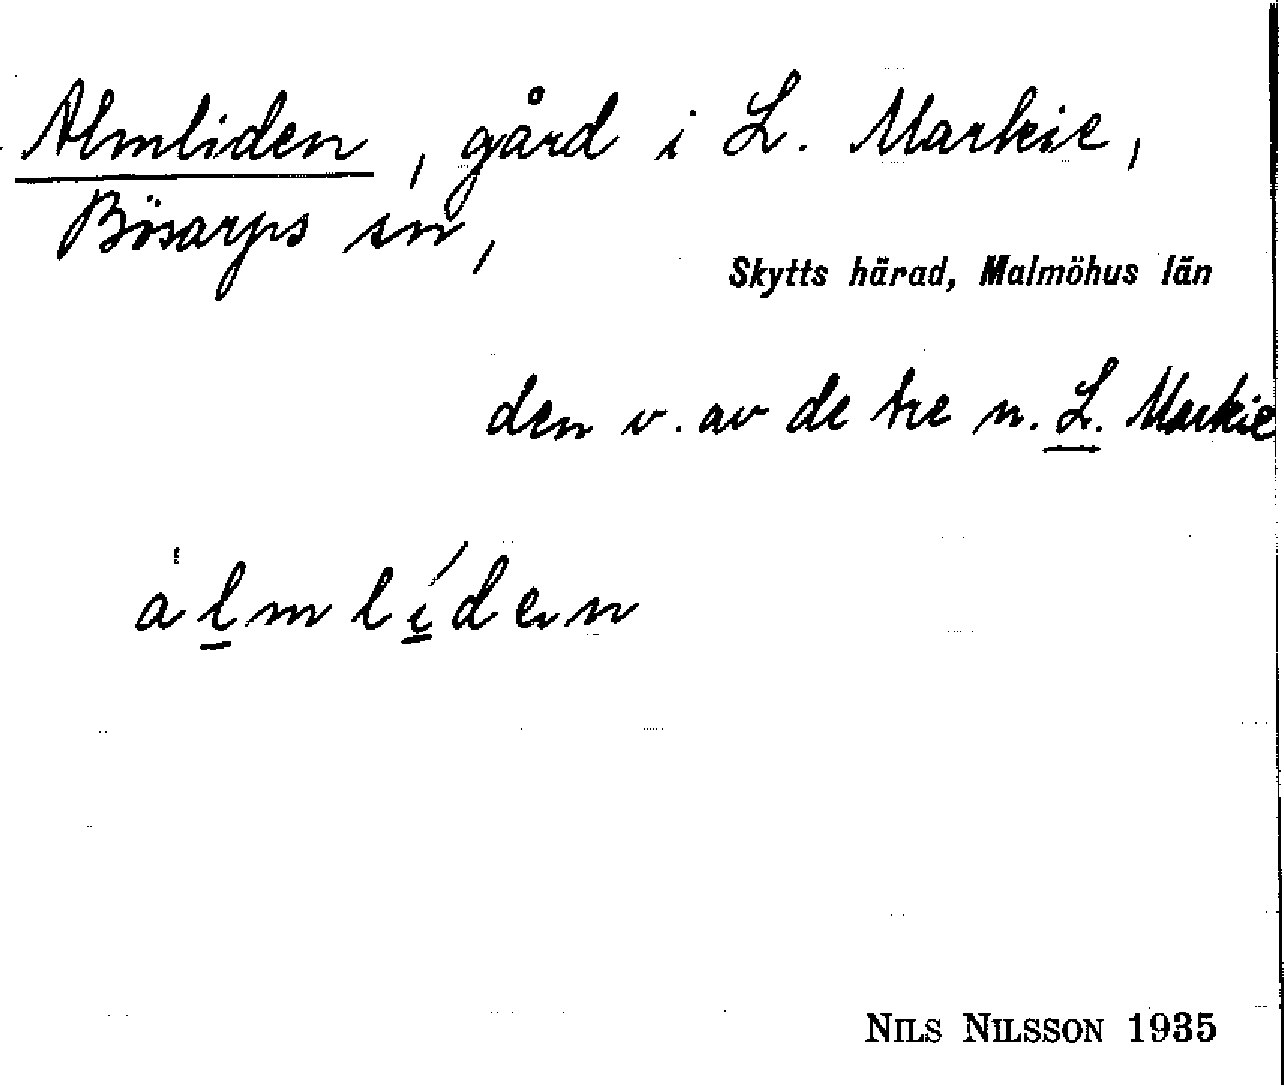 Almliden, gård i L. Markie,
Bösarps sn,
Skytts härad, Malmöhus län
den v. av de tre n. L. Markie
almlíden
NILS NILSSON 1935